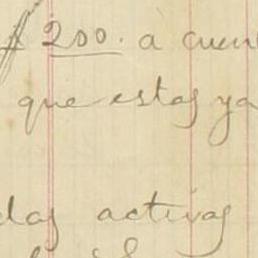 $ 200. a cuen
que estas ya
das activas